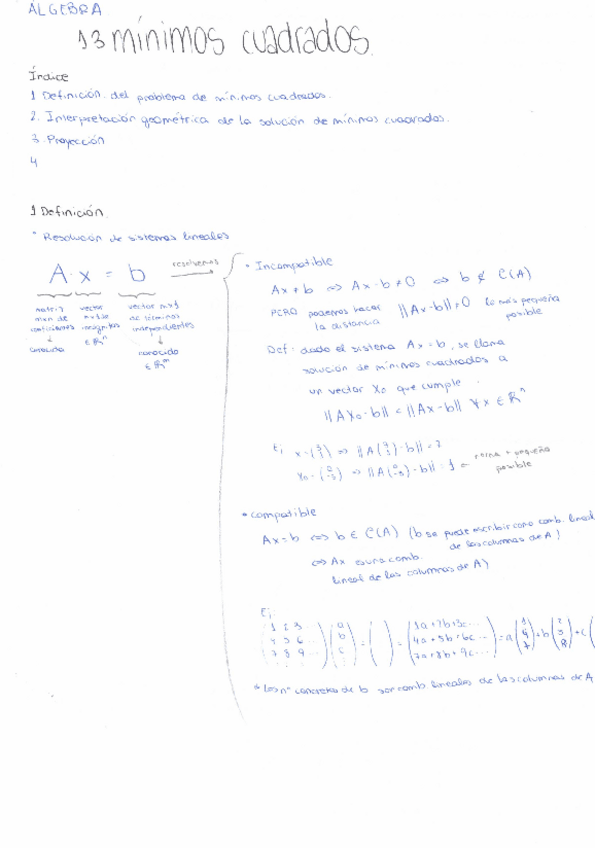 ÁLGEBRA
13 mínimos cuadrados.
Índice
1 Definición del problema de mínimos cuadrados.
2. Interpretación geométrica de la solución de mínimos cuadrados.
3 Proyección
4
1 Definición.
* Resolución de sistemas lineales
A · x = b
resolvemos
matriz mxn de coeficientes
↓
conocida
vector nx1 de incógnitas
∈ ℝⁿ
vector mx1 de términos independientes
↓
conocido
∈ ℝᵐ
* Incompatible
Ax ≠ b ⇔ Ax - b ≠ 0 ⇔ b ∉ C(A)
PERO podemos hacer la distancia ||Ax-b|| ≠ 0 lo más pequeña posible
Def: dado el sistema Ax = b, se llama
solución de mínimos cuadrados a
un vector x₀ que cumple
||Ax₀ - b|| < ||Ax - b|| ∀x ∈ ℝⁿ
Ej
norma + pequeña posible
* compatible
Ax = b ⇔ b ∈ C(A) (b se puede escribir como comb. lineal
de las columnas de A)
⇔ Ax es una comb.
lineal de las columnas de A)
Ej:
1 2 3 ...
4 5 6 ...
7 8 9 ...
a
b
c
=
=
1a + 2b + 3c ...
4a + 5b + 6c ...
7a + 8b + 9c ...
= a
1
4
7
+ b
2
5
8
+ c
* Los nº concretos de b son comb lineales de las columnas de A